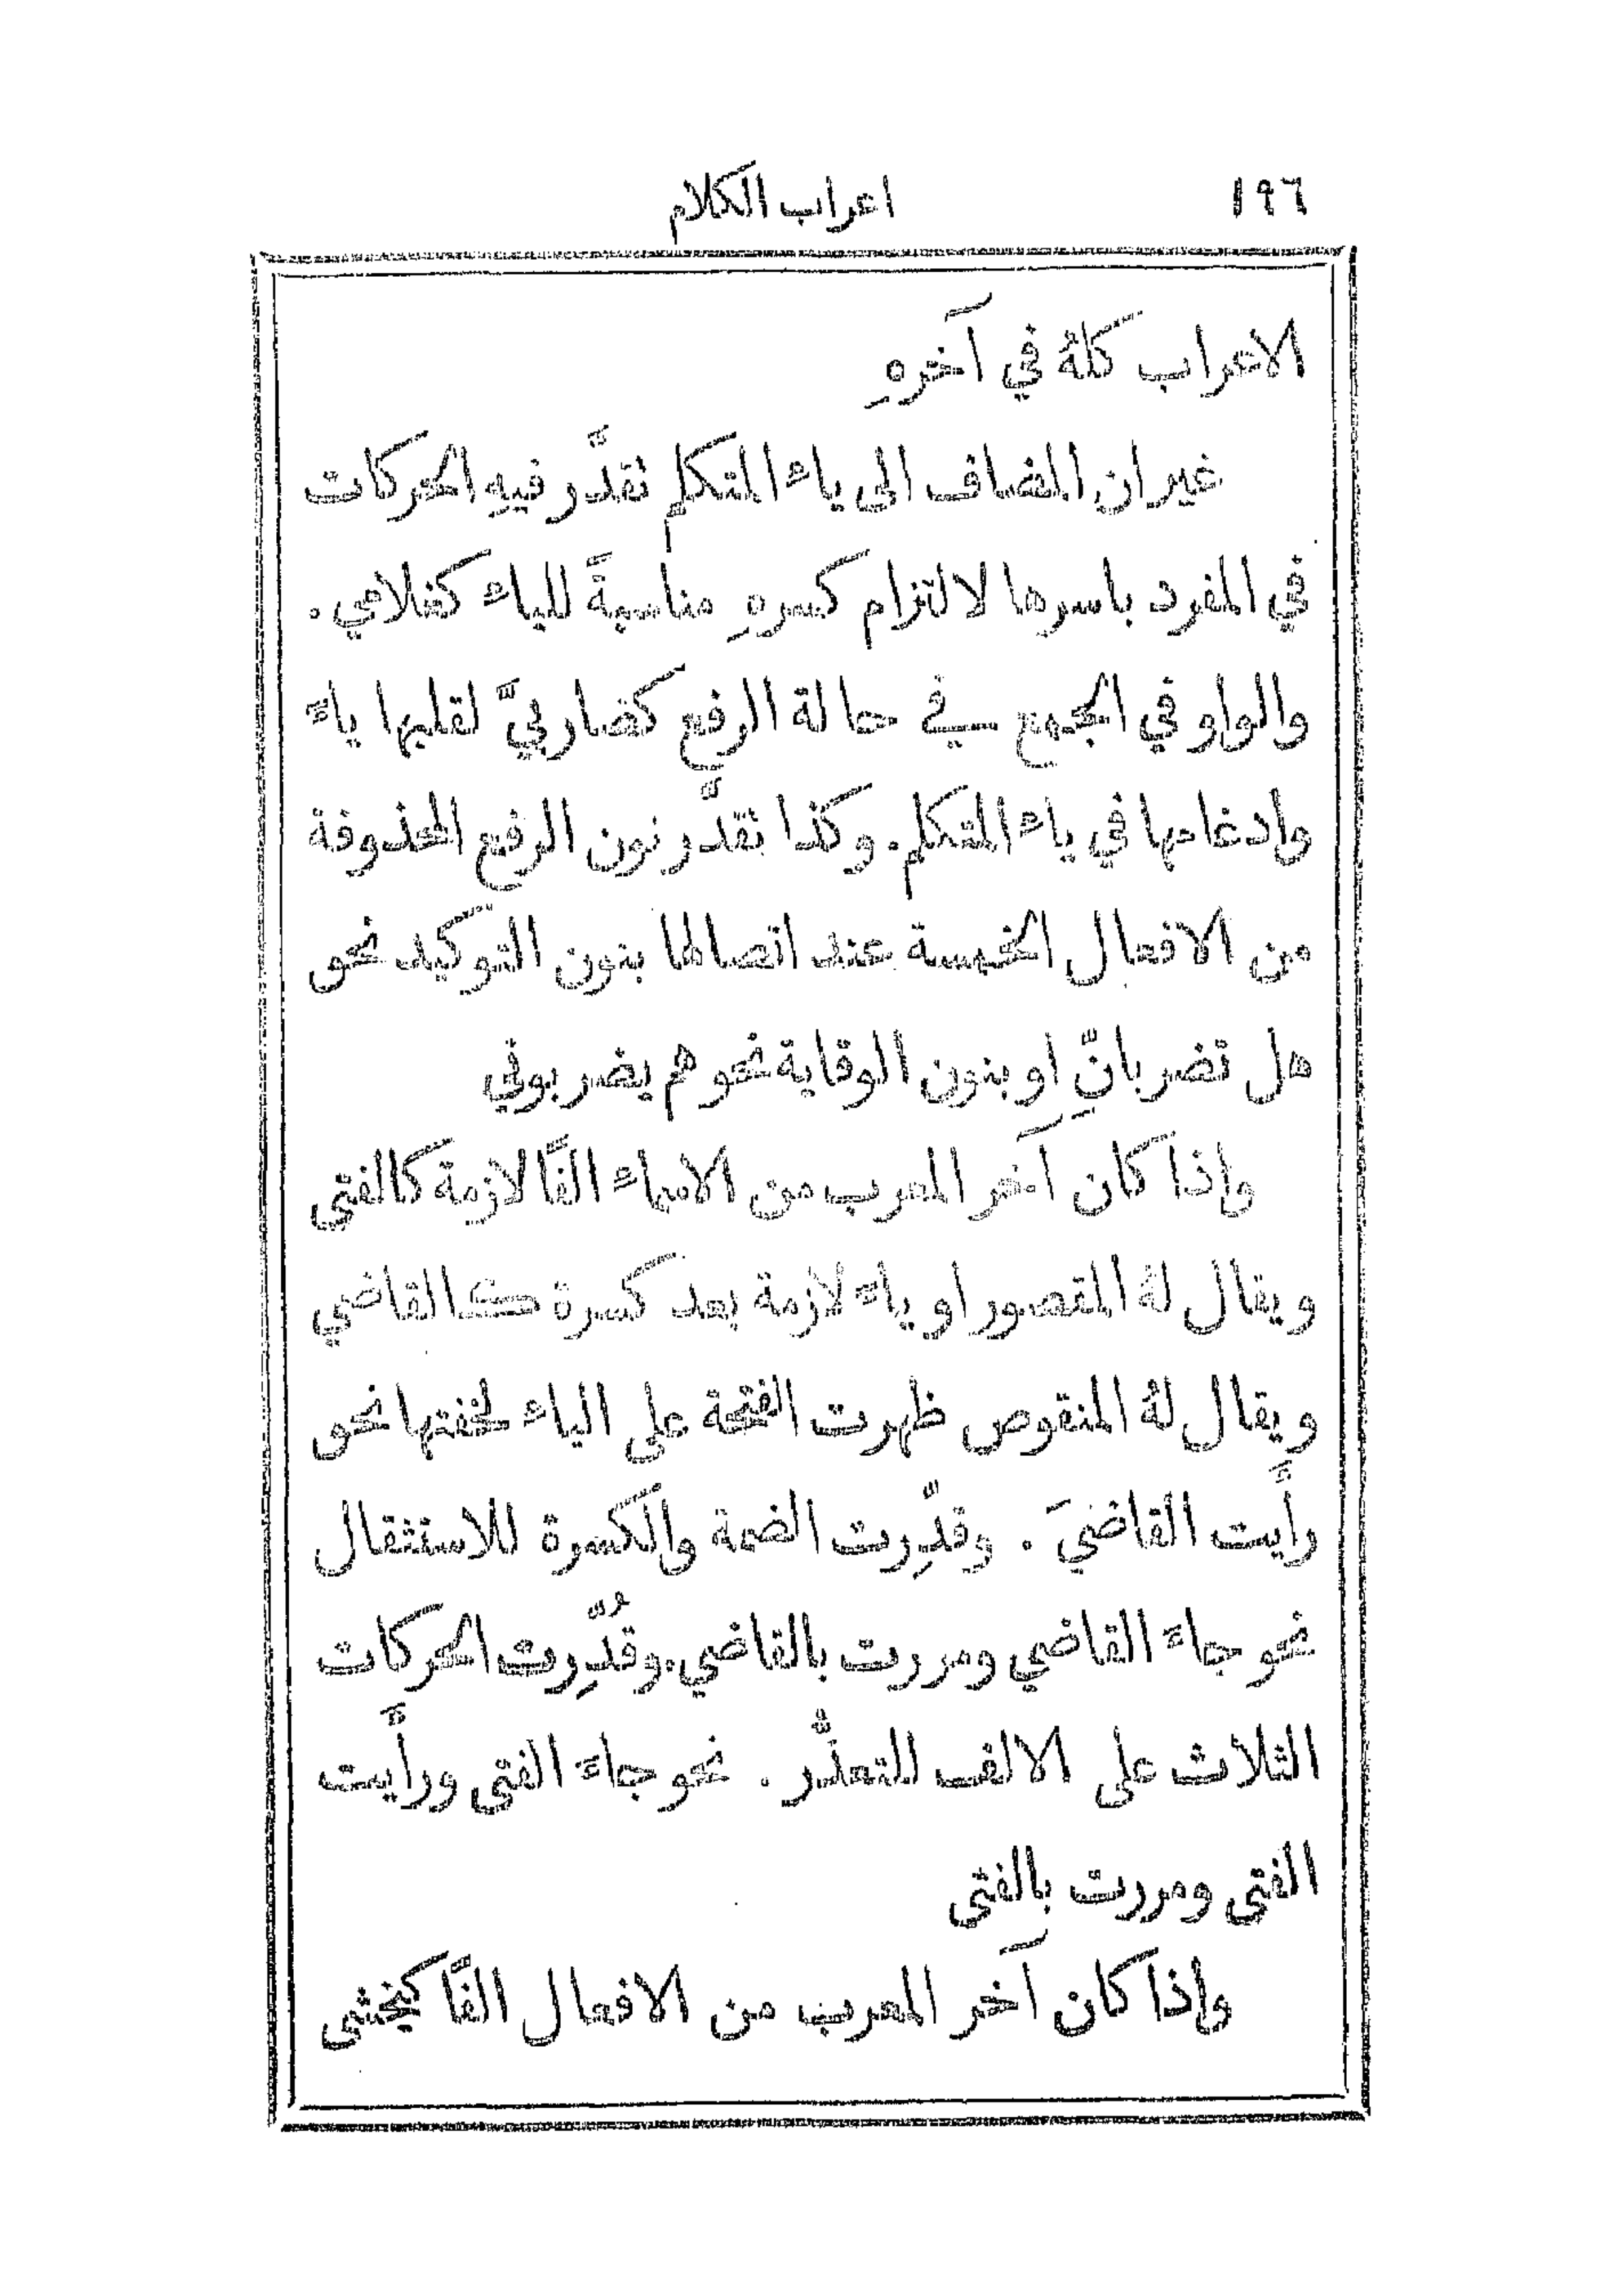 ١٩٦ اعراب الكلام
الاعراب كلهُ في آخرهِ
غير ان المضاف الى ياء المتكلم تقدَّر فيهِ الحركات
في المفرد باسرها لالتزام كسرهِ مناسبةً للياء كغلامي .
والواو في الجمع في حالة الرفع كضاربيَّ لقلبها ياءً
وادغامها في ياء المتكلم . وكذا تقدَّر نون الرفع المحذوفة
من الافعال الخمسة عند اتصالها بنون التوكيد نحو
هل تضربانِّ او بنون الوقاية نحو هم يضربوني
واذا كان آخر المعرب من الاسماء الفًا لازمة كالفتى
ويقال لهُ المقصور او ياءً لازمة بعد كسرة كالقاضي
ويقال لهُ المنقوص ظهرت الفتحة على الياء لخفتها نحو
رأَيت القاضيَ . وقدِّرت الضمة والكسرة للاستثقال
نحو جاءَ القاضي ومررت بالقاضي . وقُدِّرت الحركات
الثلاث على الالف للتعذُّر . نحو جاءَ الفتى ورأَيت
الفتى ومررت بالفتى
واذا كان آخر المعرب من الافعال الفًا كيخشى